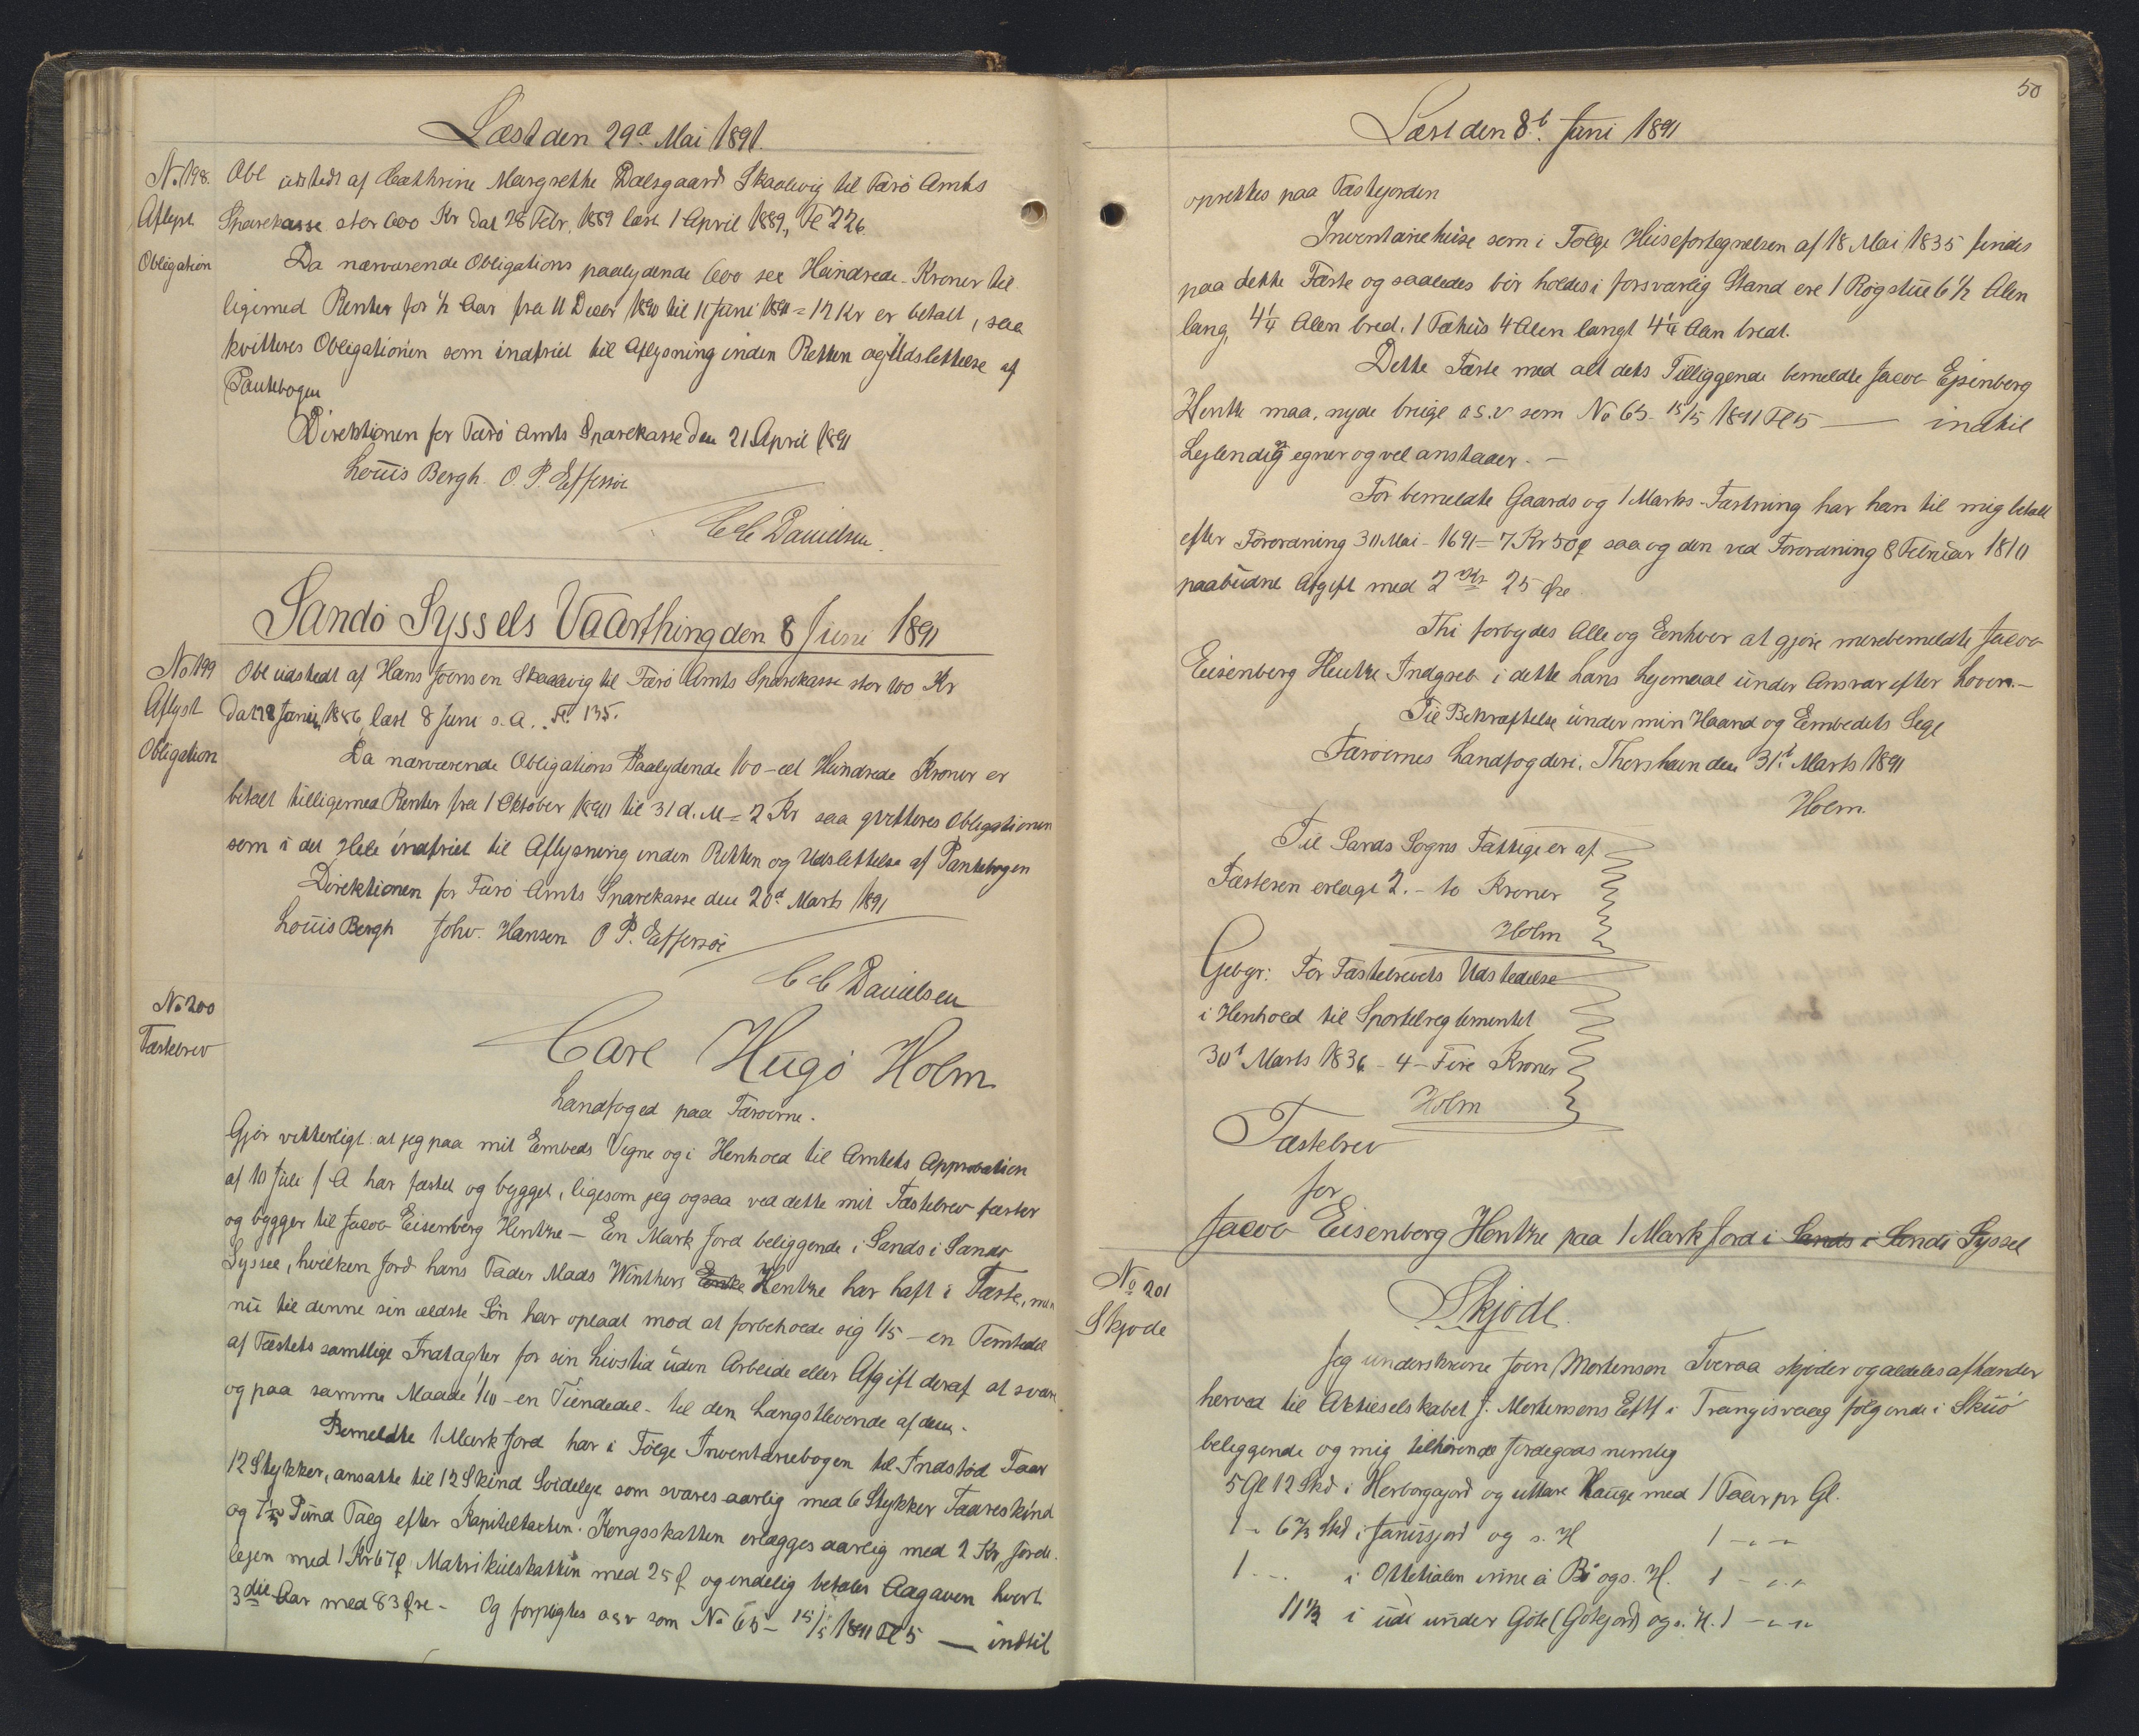 Læst den 29d Mai 1891.
No 198. Obl udstedt af Cathrine Margrethe Dalsgaard Skaalevig til Færö Amts
Aflyst Sparekasse stor 600 Kr dat 28 Febr. 1889 læst 1 April 1889, Fl 226.
Obligation Da nærværende Obligations paalydende 600 sex Hundrede Kroner til
ligemed Renter for ½ Aar fra 11 Decbr 1890 til 11 Juni 1891 = 12 Kr er betalt, saa
kvitteres Obligationen som indfriet til Aflysning inden Retten og Udslettelse af
Pantebogen
Direktionen for Færö Amts Sparekasse den 21 April 1891
Louis Bergh. O. P. Effersöe
C C Danielsen.
Sandö Syssels Vaarthing den 8 Juni 1891
No 199 Obl udstedt af Hans Joensen Skaalevig til Færö Amts Sparekasse stor 100 Kr
Aflyst dat 28 Juni 1886, læst 8 Juni s. A. Fl. 135.
Obligation Da nærværende Obligations Paalydende 100 - et Hundrede Kroner er
betalt tilligemed Renter fra 1 Oktober 1890 til 31 d. M = 2 Kr saa qvitteres Obligationen
som i det Hele indfriet til Aflysning inden Retten og Udslettelse af Pantebogen
Direktionen for Færö Amts Sparekasse den 20d Marts 1891
Louis Bergh Johv. Hansen O P. Effersöe
C C Danielsen
No 200
Fæstebrev
Carl Hugo Holm
Landfoged paa Færöerne.
Gjör vitterligt: at jeg paa mit Embeds Vegne og i Henhold til Amtets Approbation
af 10 Juli f A har fæstet og bygget, ligesom jeg ogsaa ved dette mit Fæstebrev fæster
og bygger til Jacob Eisenberg Hentze - En Mark Jord beliggende i Sands i Sandö
Syssel, hvilken Jord hans Fader Mads Winthers Enke Hentze har haft i Fæste, men
nu til denne sin ældste Sön har opladt mod at forbeholde sig 1/5 - en Femtedel
af Fæstets samtlige Indtægter for sin Livstid uden Arbeide eller Afgift deraf at svare
og paa samme Maade 1/10 - en Tiendedel - til den Længstlevende af dem.
Bemeldte 1 Mark Jord har i Fölge Inventariebogen til Indstöd Faar
12 Stykker, ansatte til 12 Skind Landskyld som svares aarlig med 6 Stykker Faareskind
og Pund Talg efter Kapiteltaxten. Kongsskatten erlægges aarlig med 2 Kr, Jorde
lejen med 1 Kr 67 Ø Matrikulskatten med 25 Ø og endelig betales Aagaven hvert
3die Aar med 83 Øre - Og forpligtes o s v som No 65 - 15/5 1891 Fl 5 — indtil
50
Læst den 8d Juni 1891
oprettes paa Fæstejorden
Inventariehuse som i Fölge Huusefortegnelsen af 18 Mai 1835 findes
paa dette Fæste og saaledes bör holdes i forsvarlig Stand ere 1 Rögstue 6 ½ Alen
lang, 4 ¼ Alen bred. 1 Fæhus 4 Alen langt 4 ¼ Alen bredt.
Dette Fæste med alt dets Tilliggende bemeldte Jacob Ejsenberg
Hentze maa, nyde bruge o s. v som No 65 - 15/5 1891 Fl 5 — indtil
Lejlending egner og vel anstaaer. -
For bemeldte Gaards og 1 Marks Fæstning har han til mig betalt
efter Forordning 30 Mai 1691 = 7 Kr 50 Ø saa og den ved Forordning 8 Februar 1810
paabudne Afgift med 2 Kr 25 Øre
Thi forbydes Alle og Eenhver at gjöre merebemeldte Jacob
Eisenberg Hentze Indgreb i dette hans Lejemaal under Ansvar efter Loven. -
Til Bekræftelse under min Haand og Embedets Segl
Færöernes Landfogderi. Thorshavn den 31t Marts 1891
Holm.
Til Sands Sogns Fattige er af
Fæsteren erlagt 2. - to Kroner
Holm
Gebyr: For Fæstebrevets Udstedelse
i Henhold til Sportelreglementet
30t Marts 1836 - 4 - Fire Kroner
Holm
Fæstebrev
for
Jacob Eisenberg Hentze paa 1 Mark Jord i Sands i Sandö Syssel
No 201
Skjöde
Skjöde.
Jeg underskrevne Joen Mortensen Tveraa skjöder og aldeles afhænder
herved til Aktieselskabet J. Mortensens Eftf i Trangisvaag fölgende i Skuö
beliggende og mig tilhörende Jordegods nemlig
5 Gl 12 Skd i Herborgajord og uttare Hauge med 1 Faar pr Gl.
1 - 6 ⅔ Skd i Janusjord og s. H 1 - " - "
1 - - i Ottetialen inne á Bö og s. H. 1 - " - "
11 ⅓ i udi under Göte (Götejord) og s. H. 1 - " - "